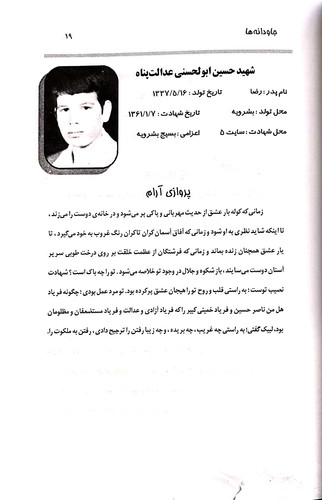 جاودانه‌ها
۱۹
شهید حسین ابولحسنی عدالت‌پناه
نام پدر : رضا تاریخ تولد : ۱۳۳۷/۵/۱۶
محل تولد : بشرویه تاریخ شهادت : ۱۳۶۱/۱/۷
محل شهادت : سایت ۵ اعزامی : بسیج بشرویه
پروازی آرام
زمانی که کوله بار عشق از حدیث مهربانی و پاکی پر می‌شود و در خانه‌ی دوست را می‌زند ،
تا اینکه شاید نظری به او شود و زمانی که آفاق آسمان کران تا کران رنگ غروب به خود می‌گیرد ، تا
یار عشق همچنان زنده بماند و زمانی که فرشتگان از عظمت خلقت بر روی درخت طوبی سر بر
آستان دوست می‌سایند ، باز شکوه و جلال در وجود تو خلاصه می‌شود. تو را چه باک است؟ شهادت
نصیب توست؛ به راستی قلب و روح تو را هیجان عشق پر کرده بود. تو مرد عمل بودی ؛ چگونه فریاد
هل من ناصر حسین و فریاد خمینی کبیر را که فریاد آزادی و عدالت و فریاد مستضعفان و مظلومان
بود، لبیک گفتی؛ به راستی چه غریب ، چه بریده ، و چه زیبا رفتن را ترجیح دادی ، رفتن به ملکوت را.